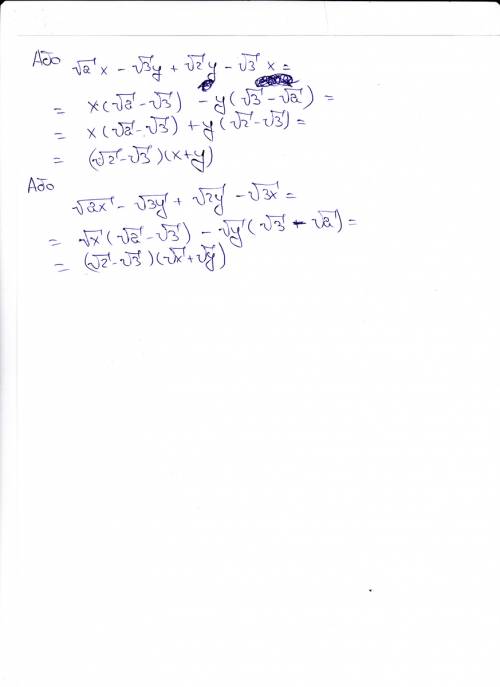 Або
√2 x − √3 y + √2 y − √3 x =
= x(√2 − √3) − y(√3 − √2) =
= x(√2 − √3) + y(√2 − √3) =
= (√2 − √3)(x + y)
Або
√2x − √3y + √2y − √3x =
= √x(√2 − √3) − √y(√3 − √2) =
= (√2 − √3)(√x + √y)